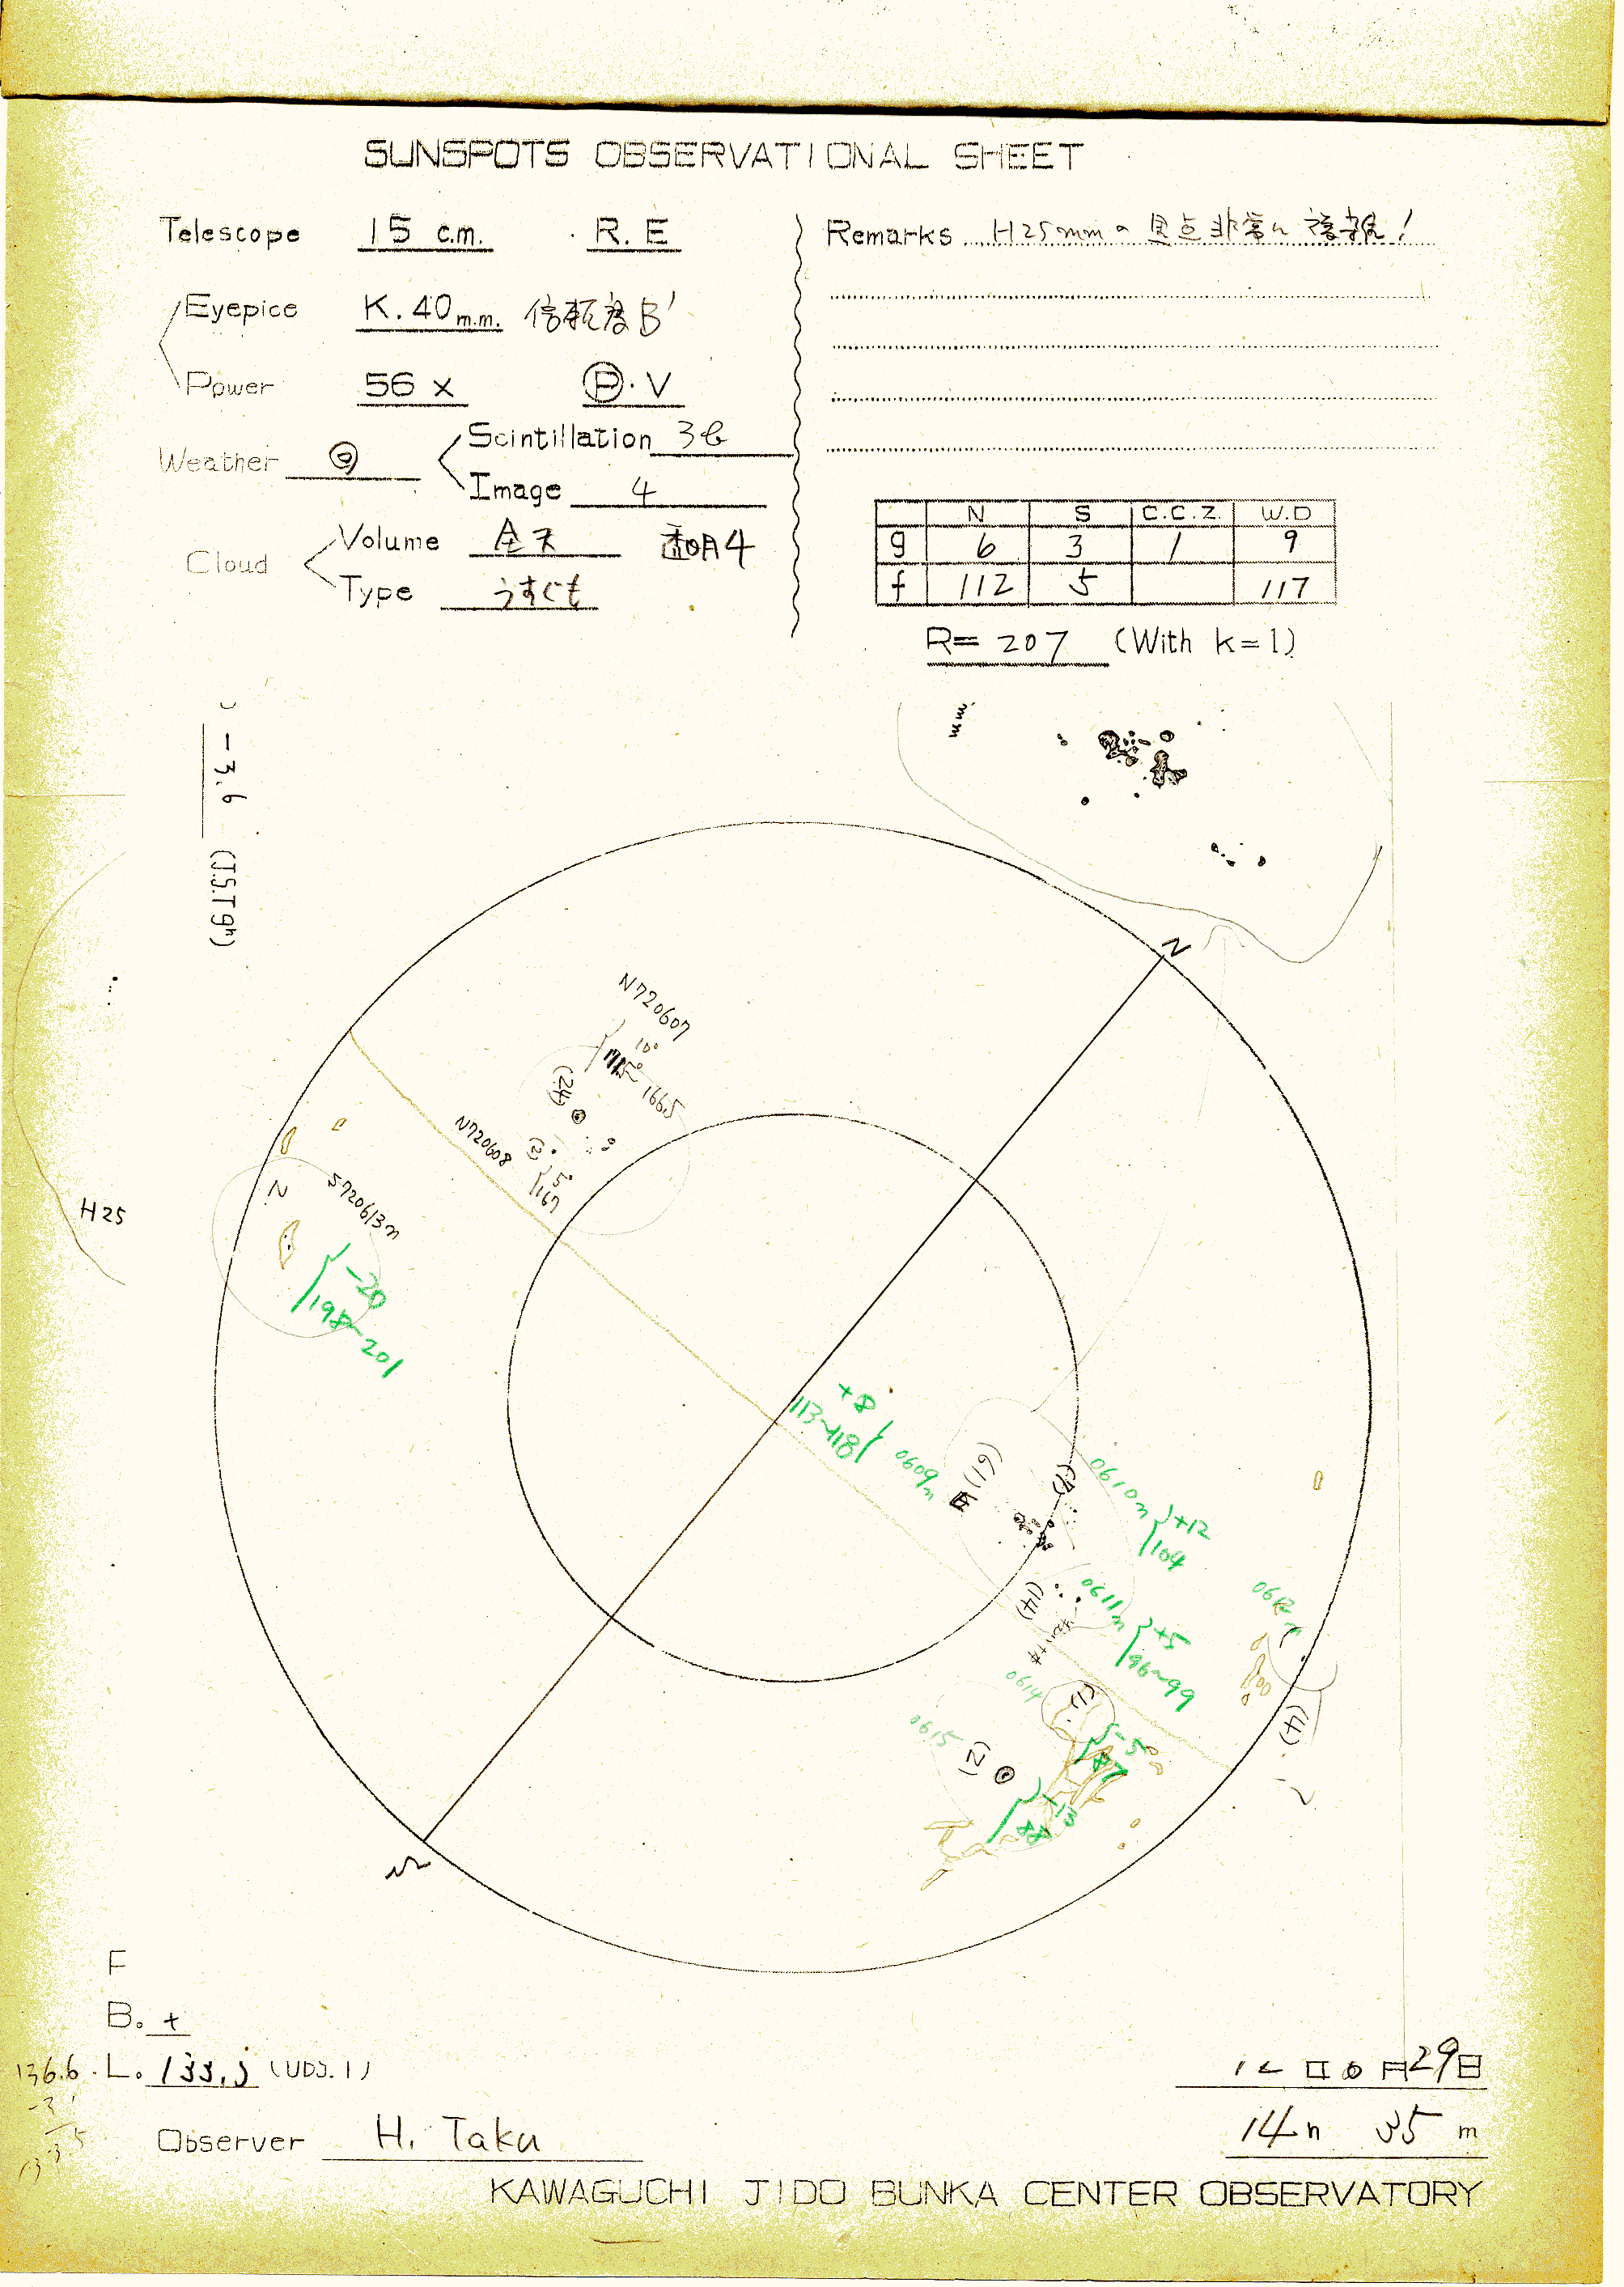 SUNSPOTS OBSERVATIONAL SHEET
Telescope 15 c.m. R.E
Eyepice K.40 m.m. 信頼度B'
Power 56 x Ⓟ・V
Weather
Scintillation 3
Image 4
Cloud
Volume 全天 透明4
Type うすぐも
Remarks H25mmの 黒点非常に 複雑!
N S C.C.Z. W.D
g 6 3 1 9
f 112 5 117
R= 207 (With k=1)
-3.6 (J.S.T 9h)
N
N720607
10°
166.5
(24)
N720608
(2)
5°
167
H25
N
S720613n
-20
198~201
+8
113~118
0609n
(61)
E
(7)
0610n
+12
104
(14)
0611n
+5
96~99
(4)
0614
(1)
-5
87
0615
(2)
-13
88
F
B. +
136.6 L.
Observer H. Taku
29日
14h 35m
KAWAGUCHI JIDO BUNKA CENTER OBSERVATORY